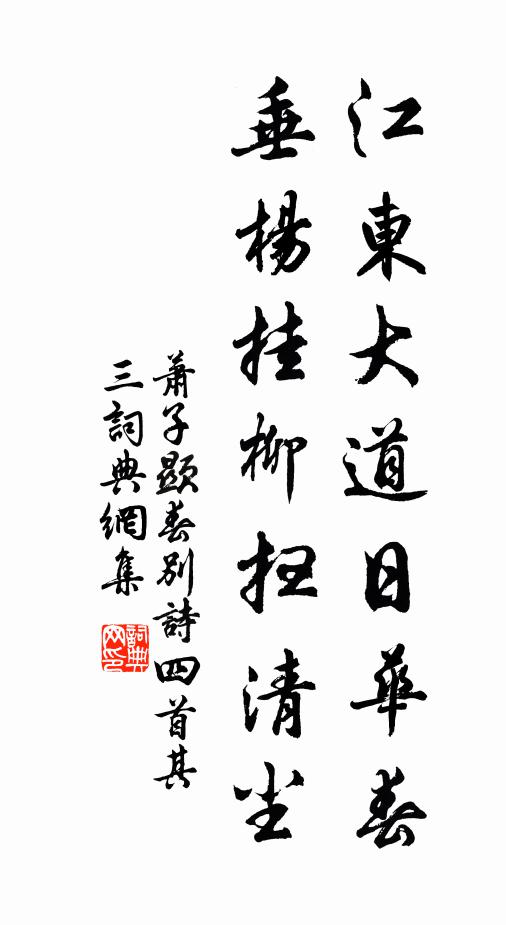 江東大道日華春
垂楊挂柳扫清尘
蕭子顯春别詩四首其
三詞典網集
詞典
网印